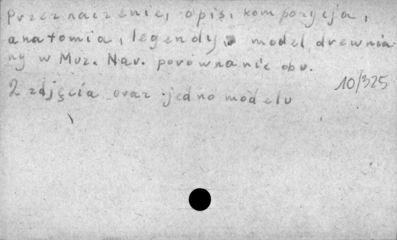 Przeznaczenie, opis, kompozycja,
anatomia, legendy, model drewnia
ny w Muz. Nar. porównanie obu.
10/325
2 zdjęcia oraz jedno modelu